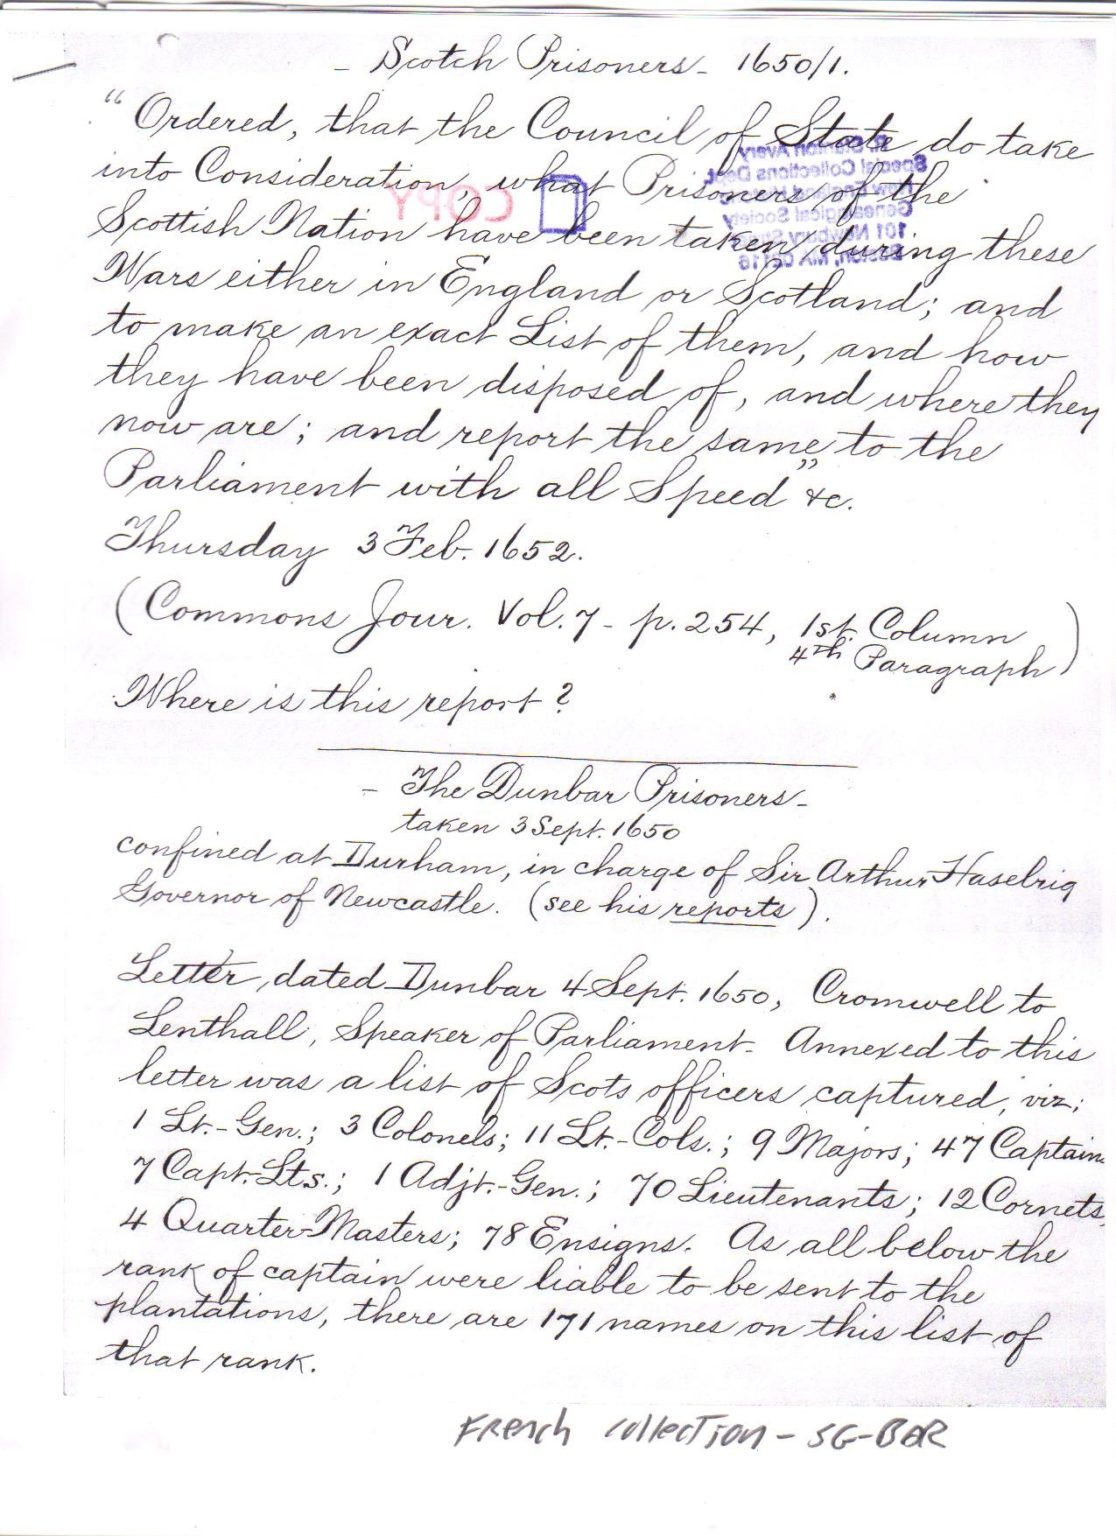 - Scotch Prisoners - 1650/1.
"Ordered, that the Council of State do take
into Consideration what Prisoners of the
Scottish Nation have been taken during these
Wars either in England or Scotland; and
to make an exact List of them, and how
they have been disposed of, and where they
now are; and report the same to the
Parliament with all Speed" &c.
Thursday 3 Feb. 1652.
(Commons Jour. Vol. 7 - p. 254, 1st. Column
4th Paragraph)
Where is this report?
- The Dunbar Prisoners -
taken 3 Sept. 1650
confined at Durham, in charge of Sir Arthur Haselrig
Governor of Newcastle. (see his reports).
Letter, dated Dunbar 4 Sept. 1650, Cromwell to
Lenthall, Speaker of Parliament. Annexed to this
letter was a list of Scots officers captured, viz;
1 Lt.-Gen.; 3 Colonels; 11 Lt.-Cols.; 9 Majors; 47 Captains
7 Capt-Lts.; 1 Adjt.-Gen.; 70 Lieutenants; 12 Cornets,
4 Quarter-Masters; 78 Ensigns. As all below the
rank of captain were liable to be sent to the
plantations, there are 171 names on this list of
that rank.
COPY
R. Stanton Avery
Special Collections Dept.
New England Historic
Genealogical Society
101 Newbury Street
Boston, MA 02116
French collection - SG-BOR